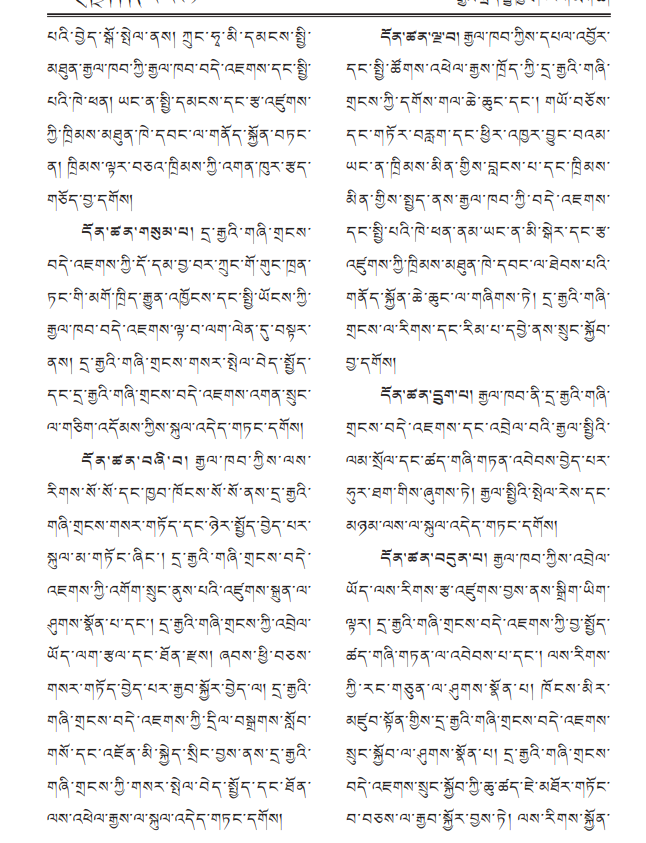 པའི་བྱེད་སྒོ་སྤེལ་ནས། ཀྲུང་ཧྭ་མི་དམངས་སྤྱི་
མཐུན་རྒྱལ་ཁབ་ཀྱི་རྒྱལ་ཁབ་བདེ་འཇགས་དང་སྤྱི་
པའི་ཁེ་ཕན། ཡང་ན་སྤྱི་དམངས་དང་རྩ་འཛུགས་
ཀྱི་ཁྲིམས་མཐུན་ཁེ་དབང་ལ་གནོད་སྐྱོན་བཏང་
ན། ཁྲིམས་ལྟར་བཅའ་ཁྲིམས་ཀྱི་འགན་ཁུར་རྩད་
གཅོད་བྱ་དགོས།
དོན་ཚན་གསུམ་པ། དྲ་རྒྱའི་གཞི་གྲངས་
བདེ་འཇགས་ཀྱི་དོ་དམ་བྱ་བར་ཀྲུང་གོ་གུང་ཁྲན་
ཏང་གི་མགོ་ཁྲིད་རྒྱུན་འཁྱོངས་དང་སྤྱི་ཡོངས་ཀྱི་
རྒྱལ་ཁབ་བདེ་འཇགས་ལྟ་བ་ལག་ལེན་དུ་བསྟར་
ནས། དྲ་རྒྱའི་གཞི་གྲངས་གསར་སྤེལ་བེད་སྤྱོད་
དང་དྲ་རྒྱའི་གཞི་གྲངས་བདེ་འཇགས་འགན་སྲུང་
ལ་གཅིག་འདོམས་ཀྱིས་སྐུལ་འདེད་གཏང་དགོས།
དོན་ཚན་བཞི་བ། རྒྱལ་ཁབ་ཀྱིས་ལས་
རིགས་སོ་སོ་དང་ཁྱབ་ཁོངས་སོ་སོ་ནས་དྲ་རྒྱའི་
གཞི་གྲངས་གསར་གཏོད་དང་ཉེར་སྤྱོད་བྱེད་པར་
སྐུལ་མ་གཏོང་ཞིང་། དྲ་རྒྱའི་གཞི་གྲངས་བདེ་
འཇགས་ཀྱི་འགོག་སྲུང་ནུས་པའི་འཛུགས་སྐྲུན་ལ་
ཤུགས་སྣོན་པ་དང་། དྲ་རྒྱའི་གཞི་གྲངས་ཀྱི་འབྲེལ་
ཡོད་ལག་རྩལ་དང་ཐོན་རྫས། ཞབས་ཕྱི་བཅས་
གསར་གཏོད་བྱེད་པར་རྒྱབ་སྐྱོར་བྱེད་ལ། དྲ་རྒྱའི་
གཞི་གྲངས་བདེ་འཇགས་ཀྱི་དྲིལ་བསྒྲགས་སློབ་
གསོ་དང་འཛོན་མི་སྐྱེད་སྲིང་བྱས་ནས་དྲ་རྒྱའི་
གཞི་གྲངས་ཀྱི་གསར་སྤེལ་བེད་སྤྱོད་དང་ཐོན་
ལས་འཕེལ་རྒྱས་ལ་སྐུལ་འདེད་གཏང་དགོས།
དོན་ཚན་ལྔ་བ། རྒྱལ་ཁབ་ཀྱིས་དཔལ་འབྱོར་
དང་སྤྱི་ཚོགས་འཕེལ་རྒྱས་ཁྲོད་ཀྱི་དྲ་རྒྱའི་གཞི་
གྲངས་ཀྱི་དགོས་གལ་ཆེ་ཆུང་དང་། གཡོ་བཅོས་
དང་གཏོར་བརླག་དང་ཕྱིར་འཁྱར་བྱུང་བའམ་
ཡང་ན་ཁྲིམས་མིན་གྱིས་བླངས་པ་དང་ཁྲིམས་
མིན་གྱིས་སྤྱད་ནས་རྒྱལ་ཁབ་ཀྱི་བདེ་འཇགས་
དང་སྤྱི་པའི་ཁེ་ཕན་ནམ་ཡང་ན་མི་སྒེར་དང་རྩ་
འཛུགས་ཀྱི་ཁྲིམས་མཐུན་ཁེ་དབང་ལ་ཐེབས་པའི་
གནོད་སྐྱོན་ཆེ་ཆུང་ལ་གཞིགས་ཏེ། དྲ་རྒྱའི་གཞི་
གྲངས་ལ་རིགས་དང་རིམ་པ་དབྱེ་ནས་སྲུང་སྐྱོབ་
བྱ་དགོས།
དོན་ཚན་དྲུག་པ། རྒྱལ་ཁབ་ནི་དྲ་རྒྱའི་གཞི་
གྲངས་བདེ་འཇགས་དང་འབྲེལ་བའི་རྒྱལ་སྤྱིའི་
ལམ་སྲོལ་དང་ཚད་གཞི་གཏན་འབེབས་བྱེད་པར་
ཧུར་ཐག་གིས་ཞུགས་ཏེ། རྒྱལ་སྤྱིའི་སྤེལ་རེས་དང་
མཉམ་ལས་ལ་སྐུལ་འདེད་གཏང་དགོས།
དོན་ཚན་བདུན་པ། རྒྱལ་ཁབ་ཀྱིས་འབྲེལ་
ཡོད་ལས་རིགས་རྩ་འཛུགས་བྱས་ནས་སྒྲིག་ཡིག་
ལྟར། དྲ་རྒྱའི་གཞི་གྲངས་བདེ་འཇགས་ཀྱི་བྱ་སྤྱོད་
ཚད་གཞི་གཏན་ལ་འབེབས་པ་དང་། ལས་རིགས་
ཀྱི་རང་གཅུན་ལ་ཤུགས་སྣོན་པ། ཁོངས་མིར་
མཛུབ་སྟོན་གྱིས་དྲ་རྒྱའི་གཞི་གྲངས་བདེ་འཇགས་
སྲུང་སྐྱོབ་ལ་ཤུགས་སྣོན་པ། དྲ་རྒྱའི་གཞི་གྲངས་
བདེ་འཇགས་སྲུང་སྐྱོབ་ཀྱི་ཆུ་ཚད་ཇེ་མཐོར་གཏོང་
བ་བཅས་ལ་རྒྱབ་སྐྱོར་བྱས་ཏེ། ལས་རིགས་སྐྱོན་